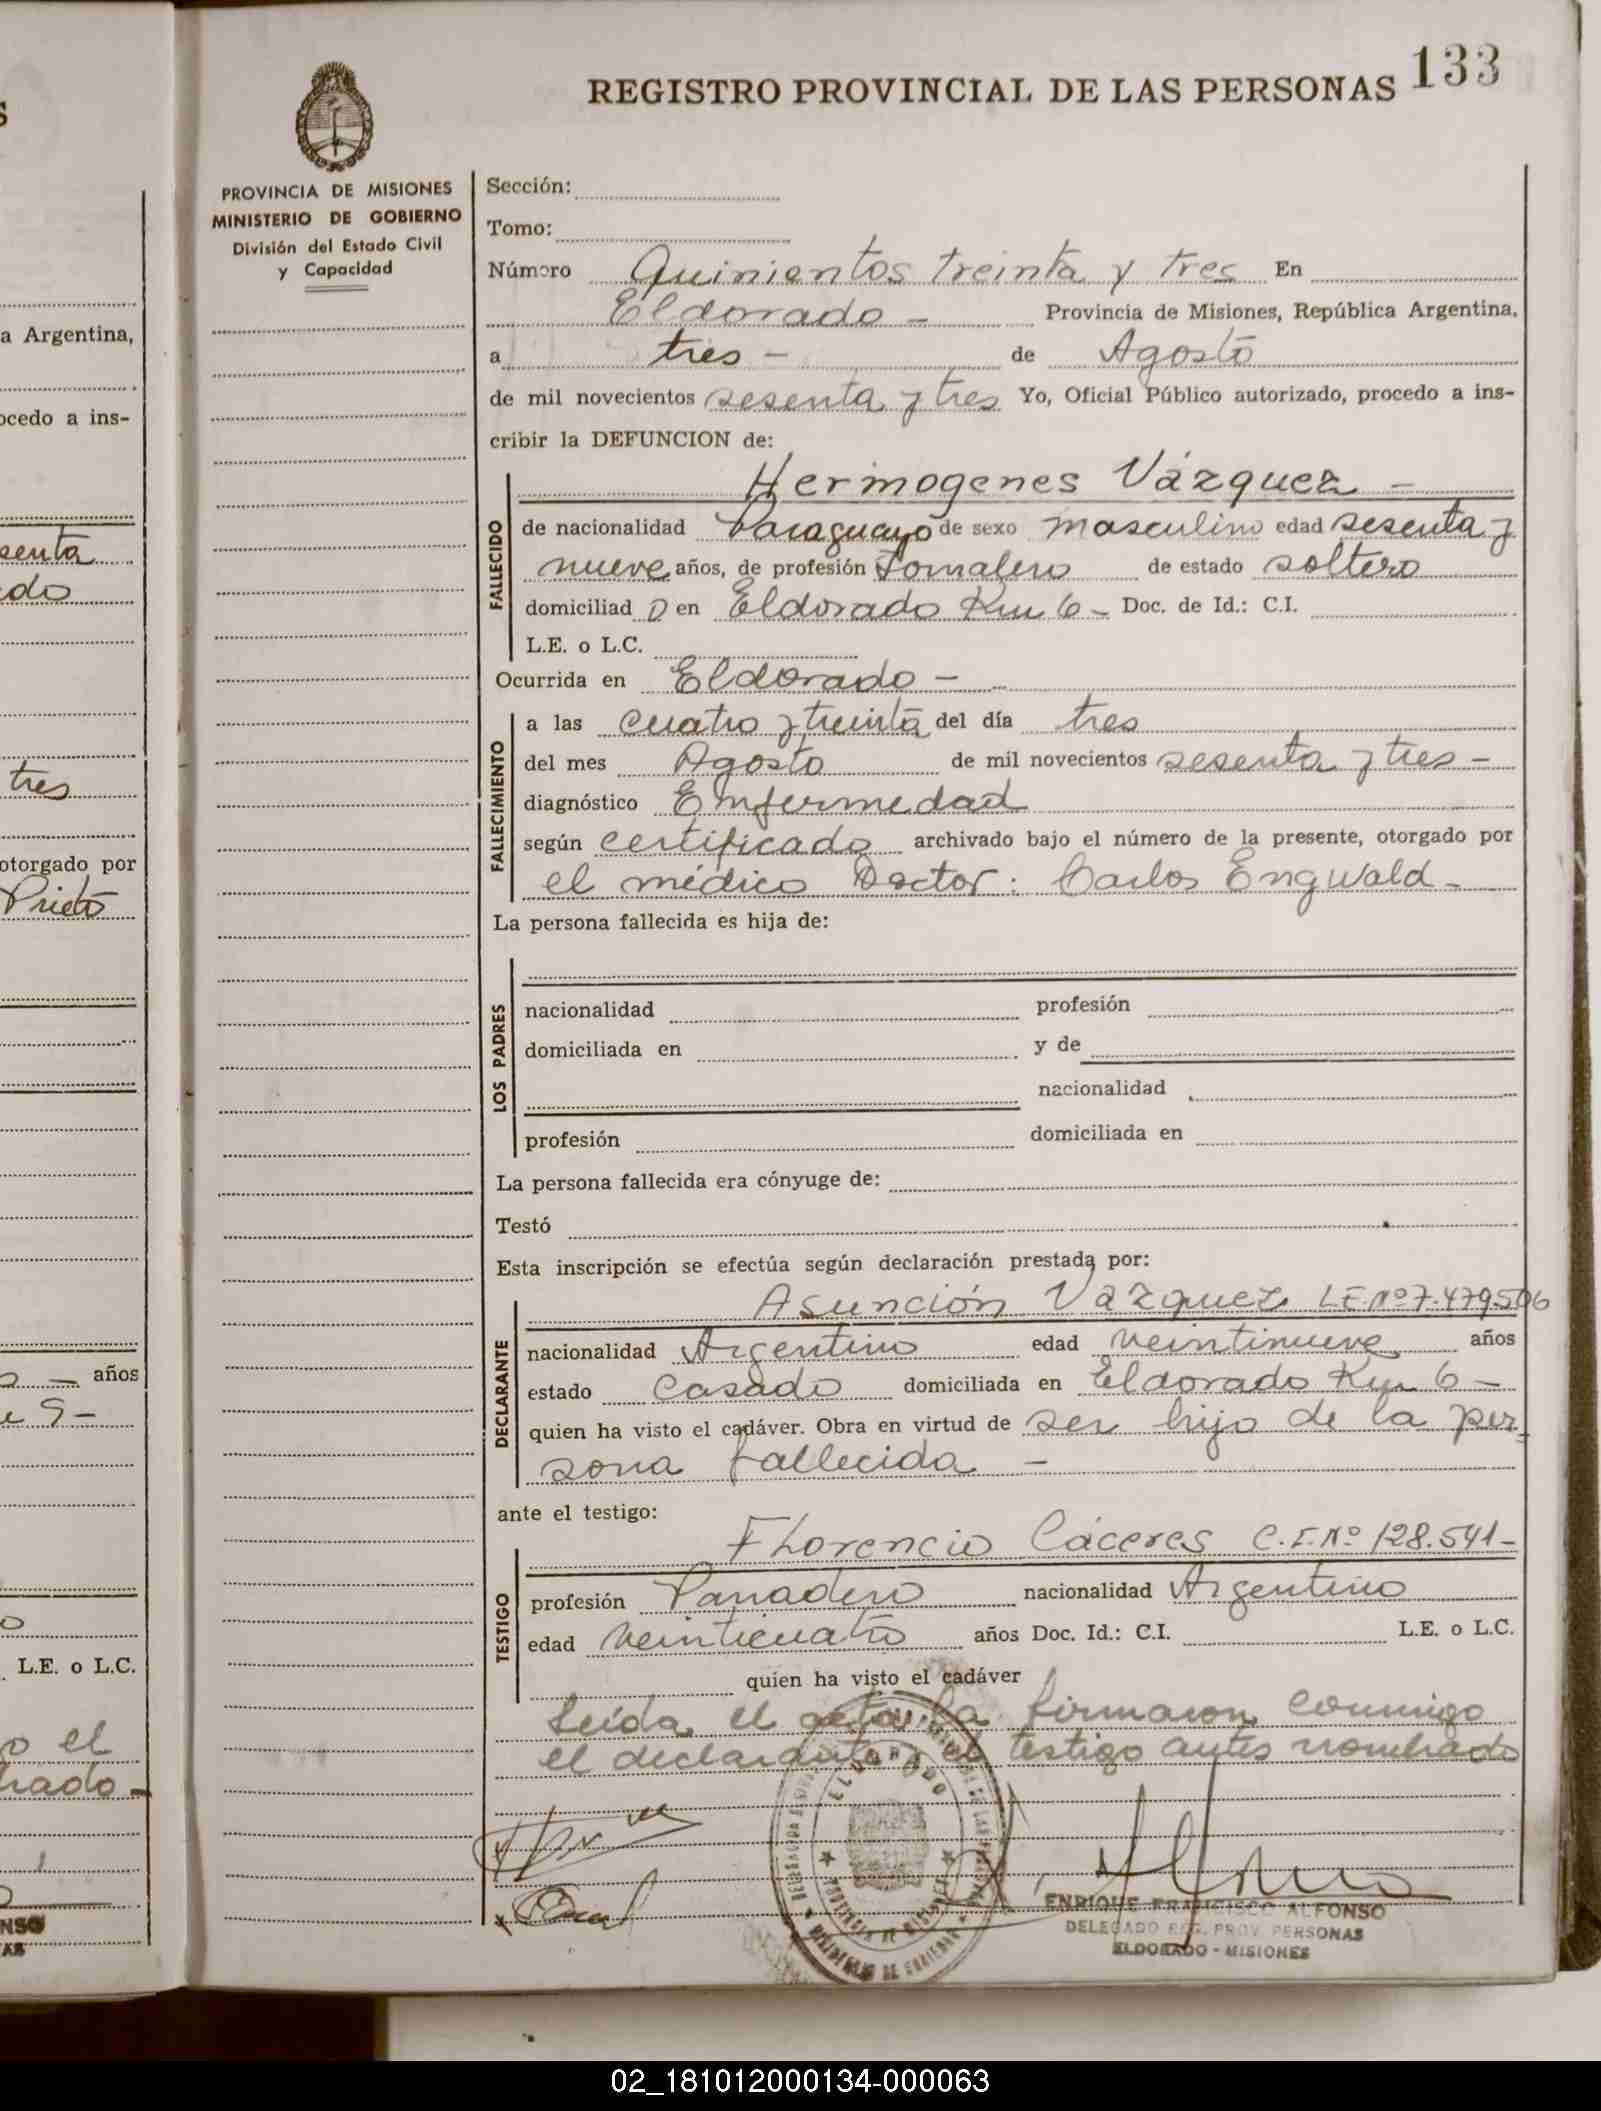 REGISTRO PROVINCIAL DE LAS PERSONAS 133
PROVINCIA DE MISIONES
MINISTERIO DE GOBIERNO
División del Estado Civil
y Capacidad
Sección:
Tomo:
Número Quinientos treinta y tres En
Eldorado - Provincia de Misiones, República Argentina,
a tres - de Agosto
de mil novecientos sesenta y tres Yo, Oficial Público autorizado, procedo a ins-
cribir la DEFUNCION de:
Hermogenes Vázquez -
FALLECIDO
de nacionalidad Paraguayo de sexo masculino edad sesenta y
nueve años, de profesión Jornalero de estado soltero
domiciliad o en Eldorado Km 6 - Doc. de Id.: C.I.
L.E. o L.C.
Ocurrida en Eldorado -
FALLECIMIENTO
a las cuatro y treinta del día tres
del mes Agosto de mil novecientos sesenta y tres -
diagnóstico Enfermedad
según certificado archivado bajo el número de la presente, otorgado por
el médico Doctor: Carlos Engwald -
La persona fallecida es hija de:
LOS PADRES
nacionalidad profesión
domiciliada en y de
nacionalidad
profesión domiciliada en
La persona fallecida era cónyuge de:
Testó
Esta inscripción se efectúa según declaración prestada por:
Asunción Vázquez L.E. Nº 7.479.506
DECLARANTE
nacionalidad Argentino edad veintinueve años
estado casado domiciliada en Eldorado Km 6 -
quien ha visto el cadáver. Obra en virtud de ser hijo de la per
sona fallecida -
ante el testigo:
Florencio Cáceres C.I. Nº 128.541 -
TESTIGO
profesión Panadero nacionalidad Argentino
edad veinticuatro años Doc. Id.: C.I. L.E. o L.C.
quien ha visto el cadáver
Leída el acta la firmaron conmigo
el declarante y el testigo antes nombrado
ELDORADO
PROVINCIA DE MISIONES
MINISTERIO DE GOBIERNO
ENRIQUE FRANCISCO ALFONSO
DELEGADO REG. PROV. PERSONAS
ELDORADO - MISIONES
a Argentina,
ocedo a ins-
senta
tres
otorgado por
Prieto
años
L.E. o L.C.
o el
02_181012000134-000063